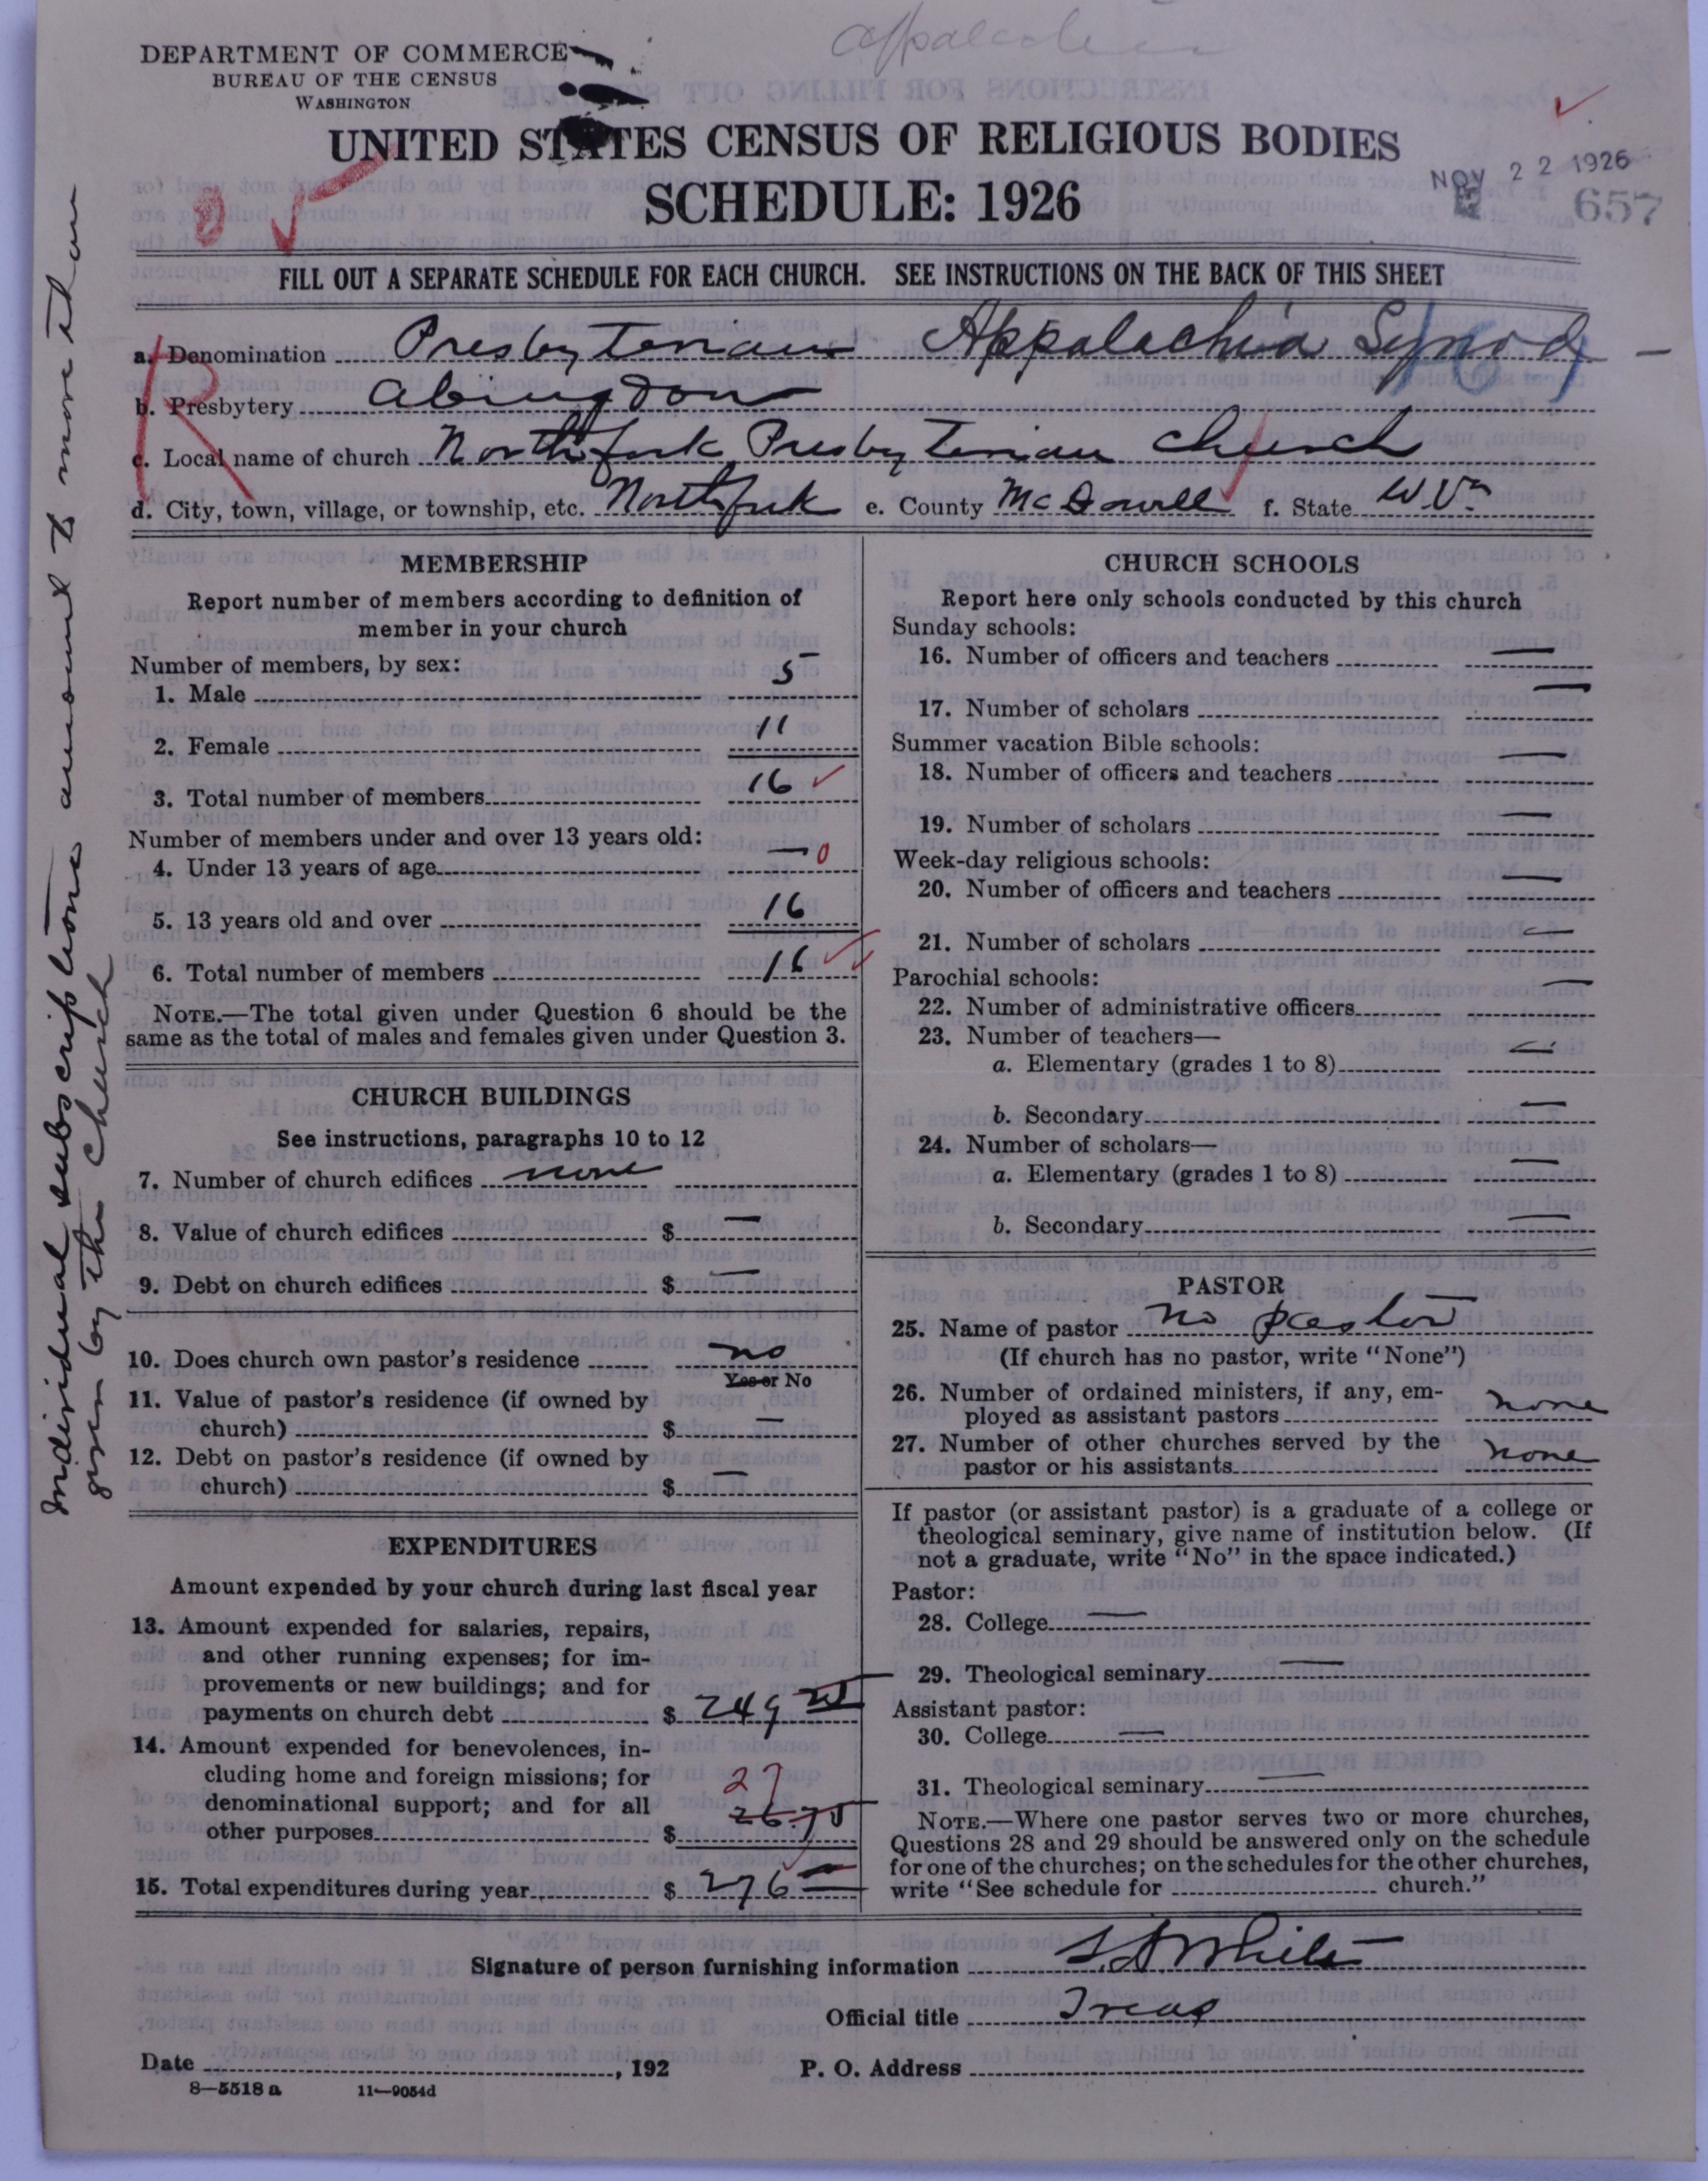 Appalachia
DEPARTMENT OF COMMERCE
BUREAU OF THE CENSUS
WASHINGTON
UNITED STATES CENSUS OF RELIGIOUS BODIES
SCHEDULE: 1926
NOV 22 1926
657
FILL OUT A SEPARATE SCHEDULE FOR EACH CHURCH. SEE INSTRUCTIONS ON THE BACK OF THIS SHEET
R
a. Denomination Presbyterian Appalachia Synod
b. Presbytery Abingdon
c. Local name of church Northfork Presbyterian Church
d. City, town, village, or township, etc. Northfork e. County McDowell f. State W Va
MEMBERSHIP
Report number of members according to definition of
member in your church
Number of members, by sex:
1. Male 5
2. Female 11
3. Total number of members 16
Number of members under and over 13 years old:
4. Under 13 years of age — 0
5. 13 years old and over 16
6. Total number of members 16
NOTE.—The total given under Question 6 should be the
same as the total of males and females given under Question 3.
CHURCH BUILDINGS
See instructions, paragraphs 10 to 12
7. Number of church edifices none
8. Value of church edifices $ —
9. Debt on church edifices $ —
10. Does church own pastor's residence no
Yes or No
11. Value of pastor's residence (if owned by
church) $ —
12. Debt on pastor's residence (if owned by
church) $ —
EXPENDITURES
Amount expended by your church during last fiscal year
13. Amount expended for salaries, repairs,
and other running expenses; for im-
provements or new buildings; and for
payments on church debt $ 249 25
14. Amount expended for benevolences, in-
cluding home and foreign missions; for
denominational support; and for all
27
other purposes $ 26.75
15. Total expenditures during year $ 276 —
CHURCH SCHOOLS
Report here only schools conducted by this church
Sunday schools:
16. Number of officers and teachers —
17. Number of scholars —
Summer vacation Bible schools:
18. Number of officers and teachers —
19. Number of scholars —
Week-day religious schools:
20. Number of officers and teachers —
21. Number of scholars —
Parochial schools:
22. Number of administrative officers —
23. Number of teachers—
a. Elementary (grades 1 to 8) —
b. Secondary —
24. Number of scholars—
a. Elementary (grades 1 to 8) —
b. Secondary —
PASTOR
25. Name of pastor no pastor
(If church has no pastor, write "None")
26. Number of ordained ministers, if any, em-
ployed as assistant pastors none
27. Number of other churches served by the
pastor or his assistants none
If pastor (or assistant pastor) is a graduate of a college or
theological seminary, give name of institution below. (If
not a graduate, write "No" in the space indicated.)
Pastor:
28. College —
29. Theological seminary —
Assistant pastor:
30. College —
31. Theological seminary —
NOTE.—Where one pastor serves two or more churches,
Questions 28 and 29 should be answered only on the schedule
for one of the churches; on the schedules for the other churches,
write "See schedule for church."
Signature of person furnishing information White
Official title Treas
Date , 192 P. O. Address
8—5518 a 11—9054d
Individual subscriptions amount to more than
given by the Church